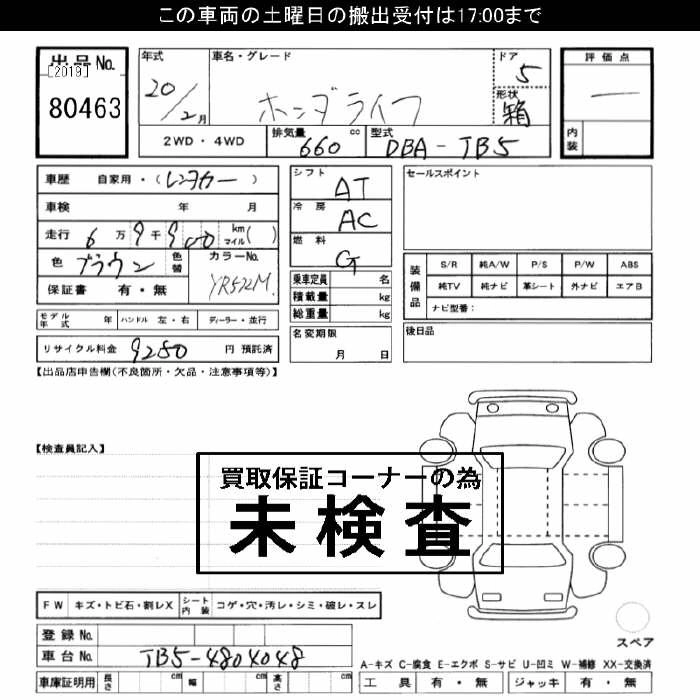 この車両の土曜日の搬出受付は17:00まで
出品No.
[2019]
80463
年式
20/2月
車名・グレード
ホンダライフ
ドア
5
形状
箱
評価点
—
内装
2WD・4WD
排気量 660 cc
型式 DBA-TB5
車歴 自家用・(レンタカー)
車検 年 月
走行 6万9千900 km マイル( )
色 ブラウン 色替
カラーNo.
YR572M
保証書 有・無
シフト AT
冷房 AC
燃料 G
乗車定員 名
積載量 kg
総重量 kg
名変期限
月 日
セールスポイント
装備品
S/R 純A/W P/S P/W ABS
純TV 純ナビ 革シート 外ナビ エアB
ナビ型番:
後日品
モデル年式 年 ハンドル 左・右 ディーラー・並行
リサイクル料金 9280 円 預託済
【出品店申告欄(不良箇所・欠品・注意事項等)】
【検査員記入】
買取保証コーナーの為
未検査
FW キズ・トビ石・割レX シート内装 コゲ・穴・汚レ・シミ・破レ・スレ
登録No.
車台No. TB5-4804048
車庫証明用 長さ cm 幅 cm 高さ cm
スペア
A-キズ C-腐食 E-エクボ S-サビ U-凹ミ W-補修 XX-交換済
工具 有・無 ジャッキ 有・無